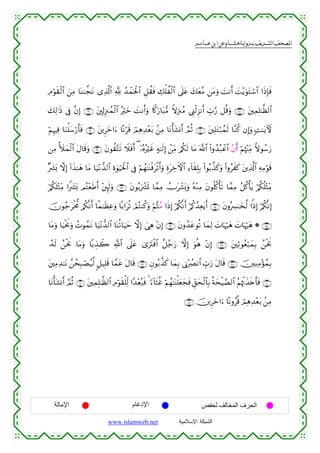 المصحف الشريف برواية هشام عن ابن عامر
فَإِذَا ٱسْتَوَيْتَ أَنتَ وَمَن مَّعَكَ عَلَى ٱلْفُلْكِ فَقُلِ ٱلْحَمْدُ لِلَّهِ ٱلَّذِى نَجَّىٰنَا مِنَ ٱلْقَوْمِ
ٱلظَّٰلِمِينَ وَقُل رَّبِّ أَنزِلْنِى مُنزَلًا مُّبَارَكًا وَأَنتَ خَيْرُ ٱلْمُنزِلِينَ إِنَّ فِى ذَٰلِكَ
لَءَايَٰتٍ وَإِن كُنَّا لَمُبْتَلِينَ ثُمَّ أَنشَأْنَا مِنۢ بَعْدِهِمْ قَرْنًا ءَاخَرِينَ فَأَرْسَلْنَا فِيهِمْ
رَسُولًا مِّنْهُمْ أَنُ ٱعْبُدُوا۟ ٱللَّهَ مَا لَكُم مِّنْ إِلَٰهٍ غَيْرُهُۥٓ أَفَلَا تَتَّقُونَ وَقَالَ ٱلْمَلَأُ مِن
قَوْمِهِ ٱلَّذِينَ كَفَرُوا۟ وَكَذَّبُوا۟ بِلِقَآءِ ٱلْءَاخِرَةِ وَأَتْرَفْنَٰهُمْ فِى ٱلْحَيَوٰةِ ٱلدُّنْيَا مَا هَٰذَآ إِلَّا بَشَرٌ
مِّثْلُكُمْ يَأْكُلُ مِمَّا تَأْكُلُونَ مِنْهُ وَيَشْرَبُ مِمَّا تَشْرَبُونَ وَلَئِنْ أَطَعْتُم بَشَرًا مِّثْلَكُمْ
إِنَّكُمْ إِذًا لَّخَٰسِرُونَ أَيَعِدُكُمْ أَنَّكُمْ إِذَا مُتُّمْ وَكُنتُمْ تُرَابًا وَعِظَٰمًا أَنَّكُم مُّخْرَجُونَ
هَيْهَاتَ هَيْهَاتَ لِمَا تُوعَدُونَ إِنْ هِىَ إِلَّا حَيَاتُنَا ٱلدُّنْيَا نَمُوتُ وَنَحْيَا وَمَا نَحْنُ
بِمَبْعُوثِينَ إِنْ هُوَ إِلَّا رَجُلٌ ٱفْتَرَىٰ عَلَى ٱللَّهِ كَذِبًا وَمَا نَحْنُ لَهُۥ
بِمُؤْمِنِينَ قَالَ رَبِّ ٱنصُرْنِى بِمَا كَذَّبُونِ قَالَ عَمَّا قَلِيلٍ لَّيُصْبِحُنَّ نَٰدِمِينَ
فَأَخَذَتْهُمُ ٱلصَّيْحَةُ بِٱلْحَقِّ فَجَعَلْنَٰهُمْ غُثَآءً فَبُعْدًا لِّلْقَوْمِ ٱلظَّٰلِمِينَ ثُمَّ أَنشَأْنَا
مِنۢ بَعْدِهِمْ قُرُونًا ءَاخَرِينَ
الحرف المخالف لحفص الإدغام الإمالة
الشبكة الإسلامية www.islamweb.net